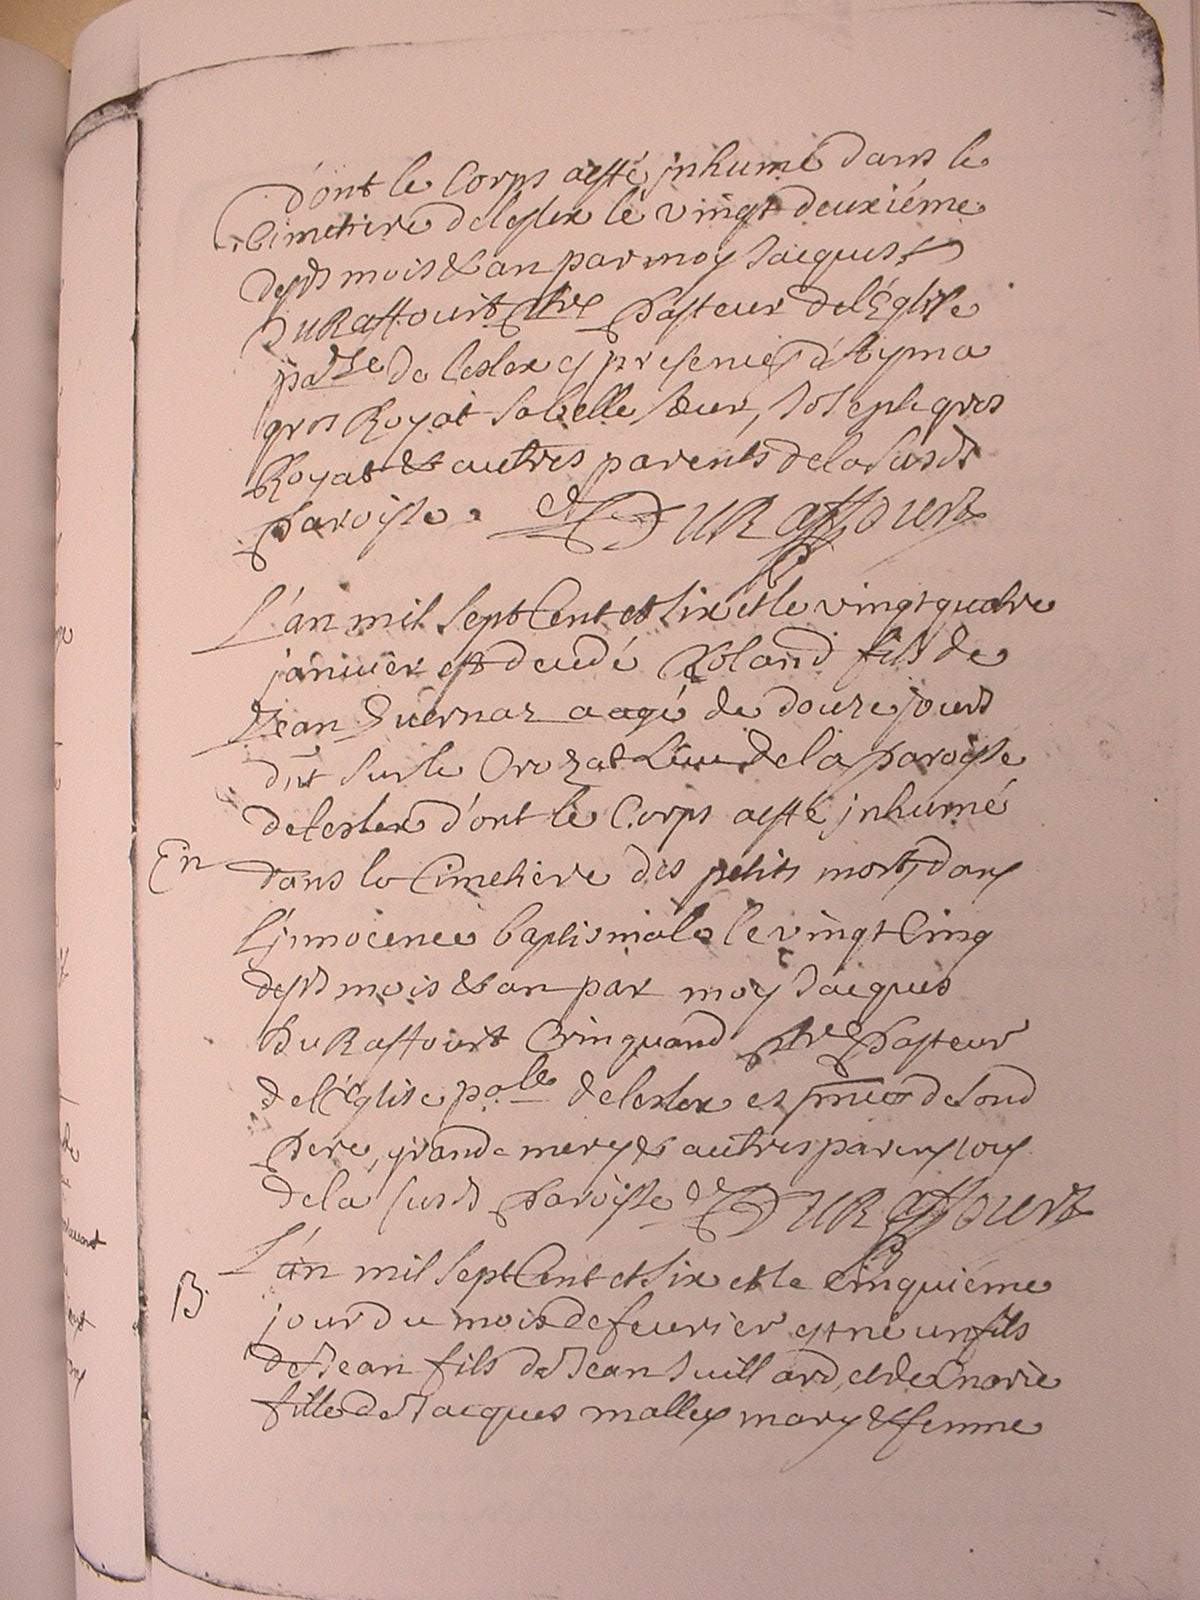 dont le Corps a esté jnhumé dans le
Cimetiere de lesler le vingt deuxiéme
desds mois & an par moy Jacques
DuRaffourt ptre Pasteur de l'Églisse
palle de lesler es presences d'
gros Royat sa belle sœur, Joseph gros
Royat & autres parents de la susde
Paroisse. DURaffourt
L'an mil Sept Cent et Six et le vingt quatre
janvier est decedé Roland fils de
Jean Duernaz aagé de douze jours
dit sur le Crozat Lieu de la paroisse
de lesler d'ont le Corps a esté jnhumé
En
dans le Cimetiere des petits morts dans
l'jnnocence baptismale le vingt Cinq
desds mois & an par moy Jacques
DuRaffourt Crinquand ptre Pasteur
de l'Église palle de lesler es pnces de sond
Pere, grand mere & autres parens tous
de la susd Paroisse DURaffourt
B.
L'an mil Sept Cent et Six et le Cinquiéme
jour du mois de feurier est né un fils
de Jean fils de Jean Vuillard, et de Marie
fille de Jacques mallex mary & femme